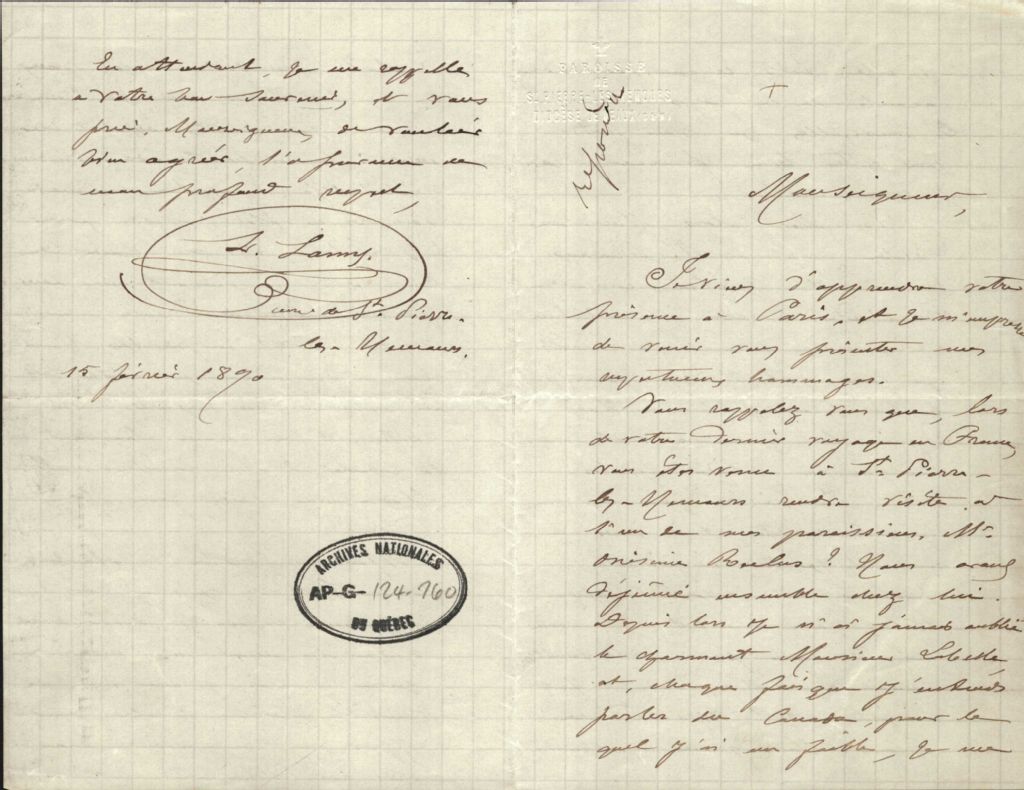 PAROISSE
DE
ST PIERRE-LES-NEMOURS
répondu
Monseigneur,
Je viens d'apprendre votre
présence à Paris, et je m'empresse
de venir vous présenter mes
respectueux hommages.
Vous rappelez vous que, lors
de votre dernier voyage en France,
vous êtes venu à St Pierre-
les-Nemours rendre visite à
l'un de mes paroissiens, Mr
Onésime Reclus? Nous avons
déjeûné ensemble chez lui.
Depuis lors je n'ai jamais oublié
le charmant Monsieur Labelle,
et, chaque fois que j'entends
parler du Canada, pour le
quel j'ai un faible, je me
En attendant, je me rappelle
à votre bon souvenir, et vous
prie, Monseigneur, de vouloir
bien agréer l'assurance de
mon profond respect,
L. Lamy.
curé de St Pierre-
les-Nemours.
15 février 1890
ARCHIVES NATIONALES
AP-G-124-760
DU QUÉBEC